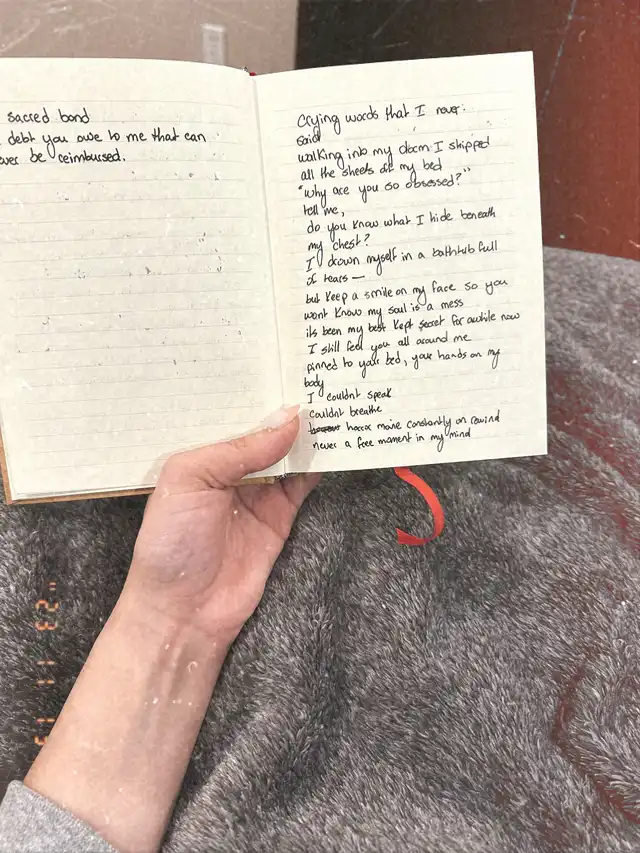 sacred bond
debt you owe to me that can
ver be reimbursed.
Crying words that I never
said
walking into my dorm I stripped
all the sheets off my bed
"why are you so obsessed?"
tell me,
do you know what I hide beneath
my chest?
I drown myself in a bathtub full
of tears —
but keep a smile on my face so you
wont know my soul is a mess
its been my best kept secret for awhile now
I still feel you all around me
pinned to your bed, your hands on my
body
I couldnt speak
couldnt breathe
horror movie constantly on rewind
never a free moment in my mind